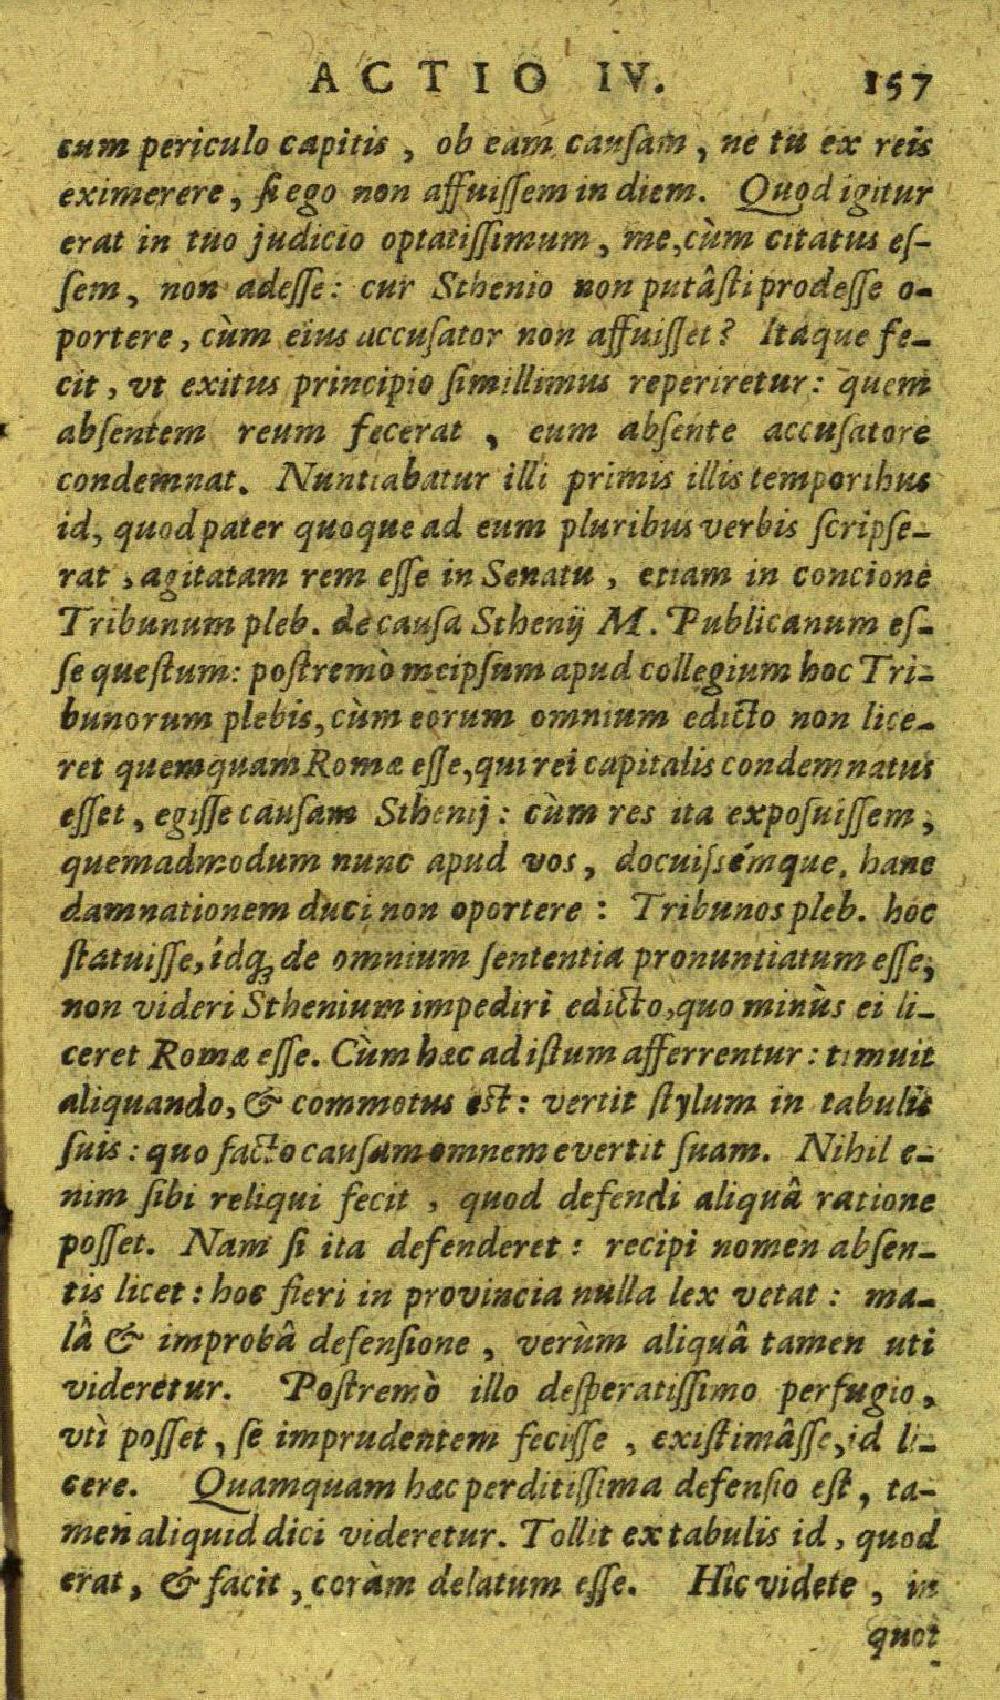 ACTIO IV. 157
cum periculo capitis, ob eam causam, ne tu ex reis
eximerere, si ego non affuissem in diem. Quod igitur
erat in tuo judicio optatissimum, me, cùm citatus es-
sem, non adesse: cur Sthenio non putâsti prodesse o-
portere, cùm eius accusator non affuisset? Itaque fe-
cit, vt exitus principio simillimus reperiretur: quem
absentem reum fecerat, eum absente accusatore
condemnat. Nuntiabatur illi primis illis temporibus
id, quod pater quoque ad eum pluribus verbis scripse-
rat, agitatam rem esse in Senatu, etiam in concione
Tribunum pleb. de causa Sthenij M. Publicanum es-
se questum: postremò meipsum apud collegium hoc Tri-
bunorum plebis, cùm eorum omnium edicto non lice-
ret quemquam Romæ esse, qui rei capitalis condemnatus
esset, egisse causam Sthenij: cùm res ita exposuissem,
quemadmodum nunc apud vos, docuissémque, hanc
damnationem duci non oportere: Tribunos pleb. hoc
statuisse, idq; de omnium sententia pronuntiatum esse,
non videri Sthenium impediri edicto, quo minùs ei li-
ceret Romæ esse. Cùm hæc ad istum afferrentur: timuit
aliquando, & commotus est: vertit stylum in tabulis
suis: quo facto causam omnem evertit suam. Nihil e-
nim sibi reliqui fecit, quod defendi aliquâ ratione
posset. Nam si ita defenderet: recipi nomen absen-
tis licet: hoc fieri in provincia nulla lex vetat: ma-
lâ & improbâ defensione, verùm aliquâ tamen uti
videretur. Postremò illo desperatissimo perfugio,
vtì posset, se imprudentem fecisse, existimâsse, id li-
cere. Quamquam hæc perditissima defensio est, ta-
men aliquid dici videretur. Tollit ex tabulis id, quod
erat, & facit, coràm delatum esse. Hîc videte, in
quot